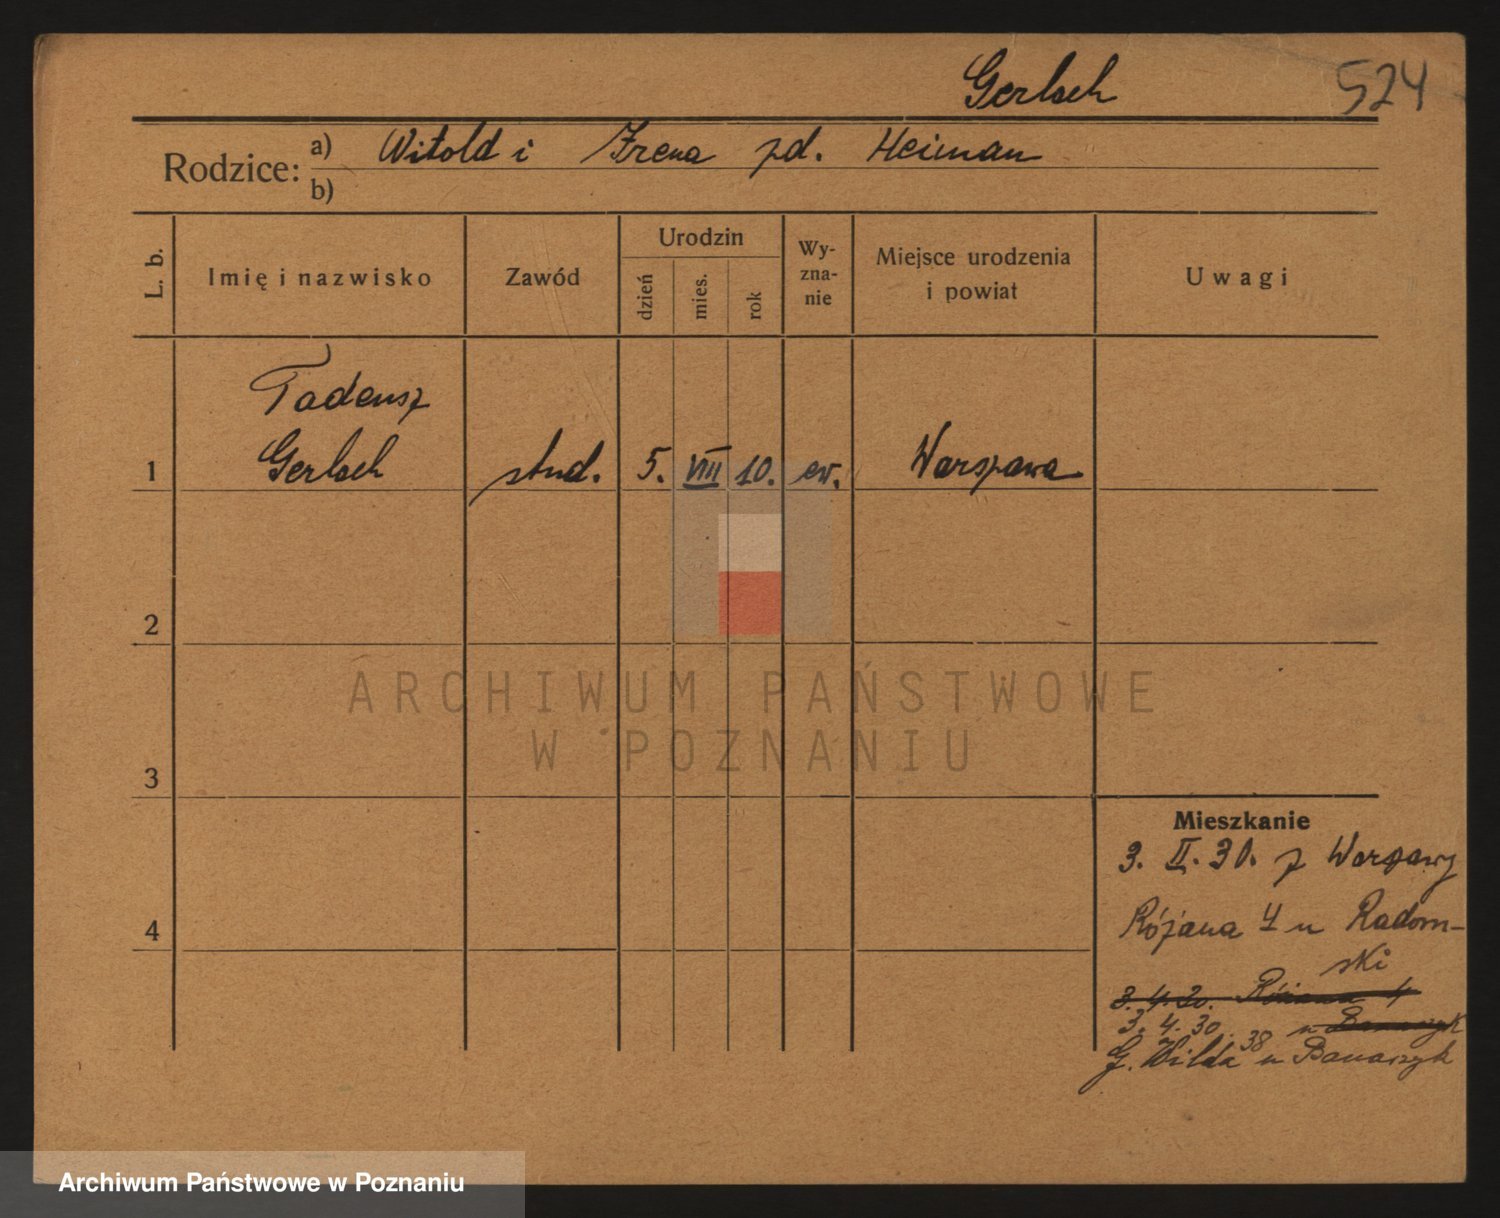 Gerlach 524
Rodzice: a) Witold i Irena zd. Heiman
b)
L. b. Imię i nazwisko Zawód Urodzin dzień mies. rok Wyzna-nie Miejsce urodzenia i powiat Uwagi
Tadeusz
1 Gerlach stud. 5. VIII 10. ew. Warszawa
2
ARCHIWUM PAŃSTWOWE
W POZNANIU
3
Mieszkanie
3. II. 30. z Warszawy
4 Różana 4 u Radom-
ski
3. 4. 30. Różana 4
3. 4. 30. u Banaszyk
G. Wilda 38 u Banaszyk
Archiwum Państwowe w Poznaniu